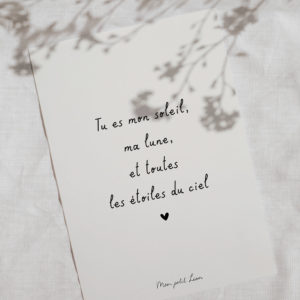 Tu es mon soleil,
ma lune,
et toutes
les étoiles du ciel
Mon petit Léon